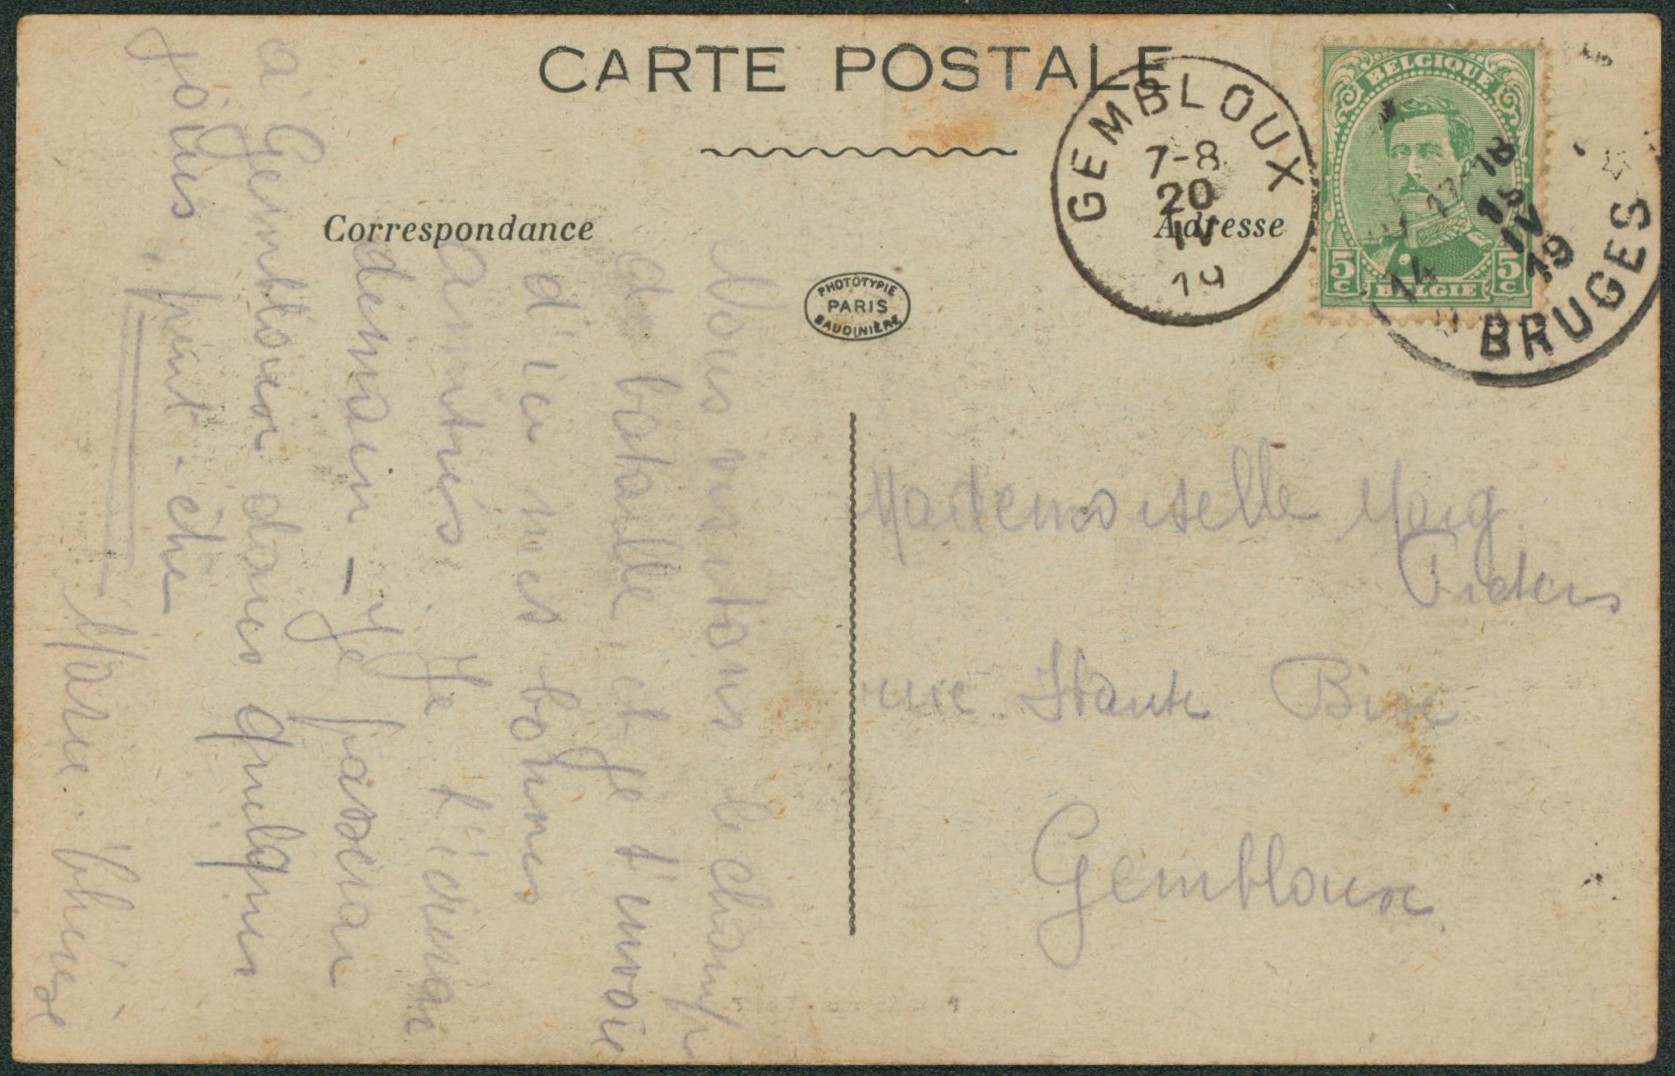 CARTE POSTALE
Correspondance
Adresse
PHOTOTYPIE
PARIS
BAUDINIÈRE
GEMBLOUX
7-8
20
IV
19
BELGIQUE
5c 5c
BELGIE
17-18
IV
19
14
BRUGES
Nous visitons le champ
de bataille, et je t'envoie
d'ici mes bonnes
amitiés. Je t'écrirai
demain - Je passerai
à Gembloux dans quelques
jours, peut-être
Marie Thérèse
Mademoiselle Marg
Pieters
rue Haute Bise
Gembloux.